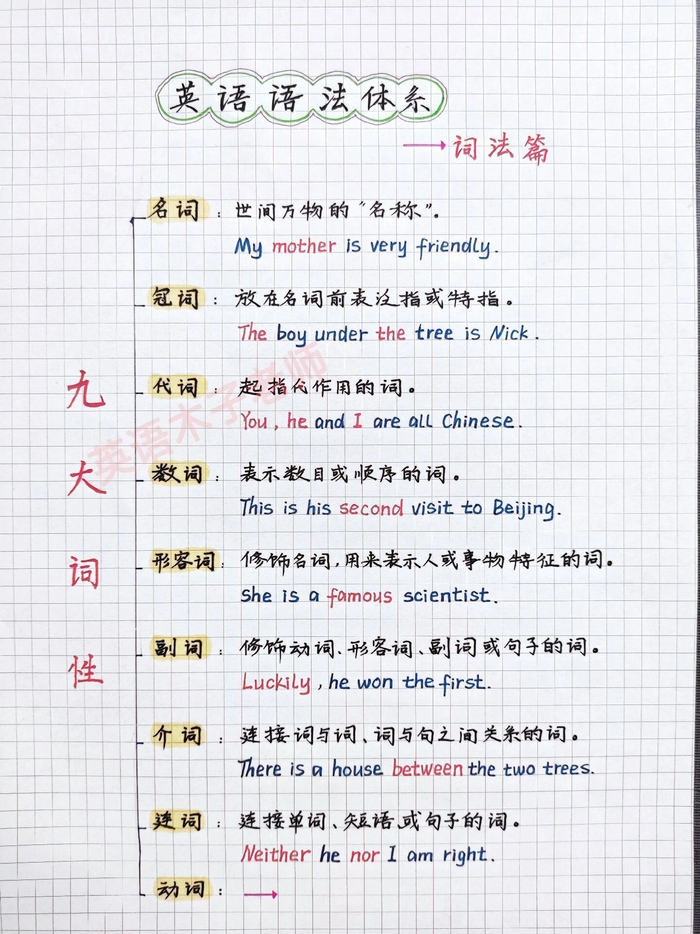 英语语法体系
→词法篇
九大词性
名词：世间万物的“名称”。
My mother is very friendly.
冠词：放在名词前表泛指或特指。
The boy under the tree is Nick.
代词：起指代作用的词。
You, he and I are all Chinese.
数词：表示数目或顺序的词。
This is his second visit to Beijing.
形容词：修饰名词,用来表示人或事物特征的词。
She is a famous scientist.
副词：修饰动词、形容词、副词或句子的词。
Luckily, he won the first.
介词：连接词与词、词与句之间关系的词。
There is a house between the two trees.
连词：连接单词、短语或句子的词。
Neither he nor I am right.
动词：→
英语木子老师